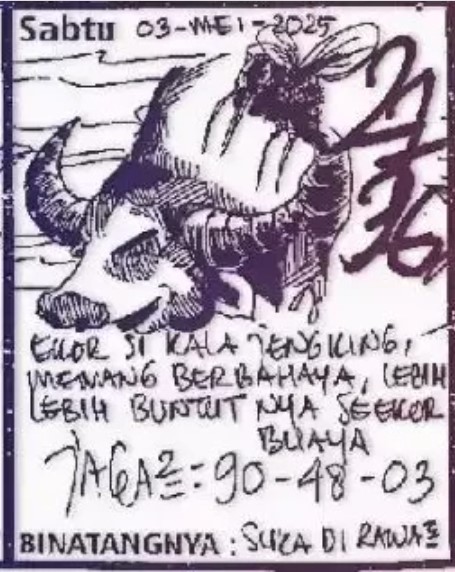 Sabtu 03-MEI-2025
21
36
EKOR SI KALA JENGKING,
MEMANG BERBAHAYA, LEBIH
LEBIH BUNTUT NYA SEEKOR
BUAYA
JAGA²=90-48-03
BINATANGNYA : SUKA DI RAWA²